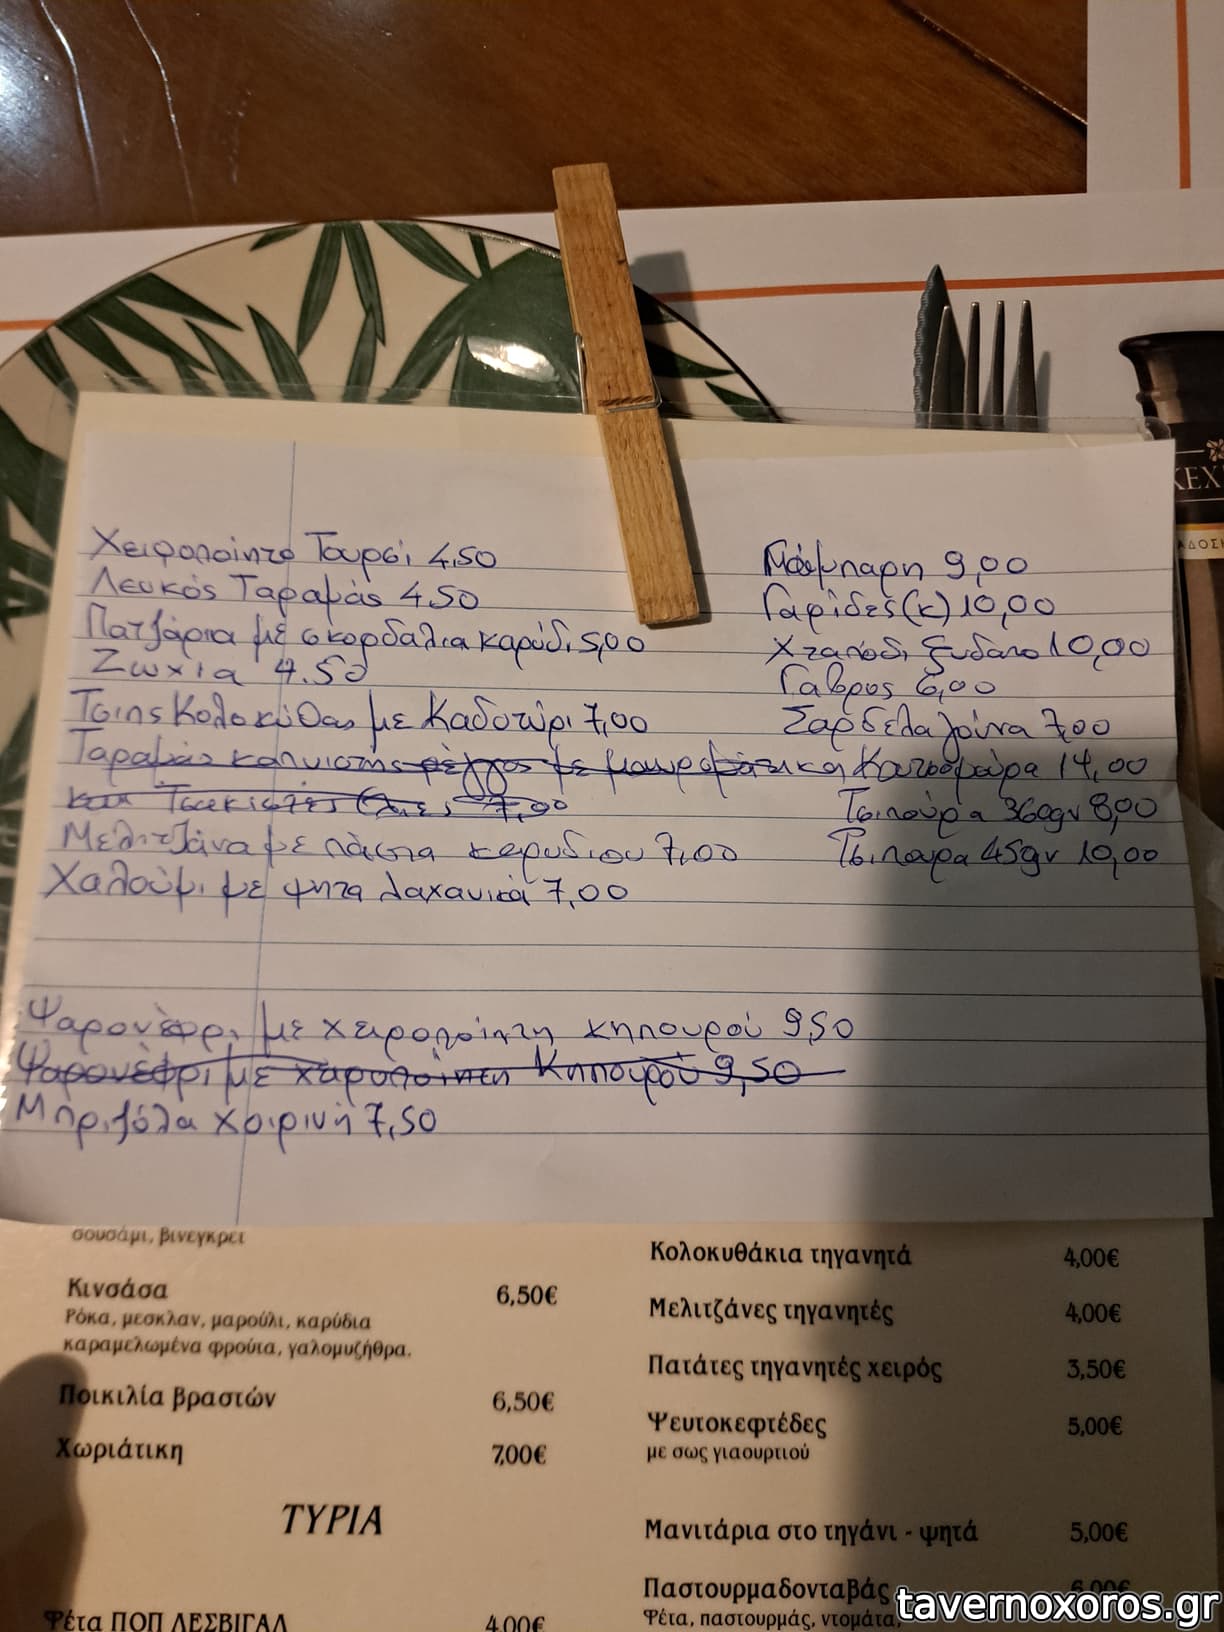 Χειροποίητο Τουρσί 4,50
Λευκός Ταραμάς 4.50
Πατζάρια με σκορδαλια καρύδι 5,00
Ζωχια 4.50
Τσιπς Κολοκύθας με Καδοτύρι 7,00
Ταραμάς καπνιστης ρέγγας με μαυρομάτικα
και 7,00
Μελιτζάνα με πάστα καρυδιου 7,00
Χαλούμι με ψητα λαχανικά 7,00
Ψαρονέφρι με χειροποίητη κηπουρού 9,50
Ψαρονέφρι με χειροποίητη Κηπουρού 9,50
Μπριζόλα χοιρινή 7,50
Μπάρμπαρη 9,00
Γαρίδες (κ) 10,00
Χταπόδι ξυδατο 10,00
Γαβρος 6,00
Σαρδελα γούνα 7,00
Κουτσομούρα 14,00
Τσιπούρα 360gr 8,00
Τσιπουρα 45gr 10,00
σουσάμι, βινεγκρετ
Κινσάσα 6,50€
Ρόκα, μεσκλαν, μαρούλι, καρύδια
καραμελωμένα φρούτα, γαλομυζήθρα.
Ποικιλία βραστών 6,50€
Χωριάτικη 7,00€
ΤΥΡΙΑ
Φέτα ΠΟΠ ΛΕΣΒΙΓΑΛ 4,00€
Κολοκυθάκια τηγανητά 4,00€
Μελιτζάνες τηγανητές 4,00€
Πατάτες τηγανητές χειρός 3,50€
Ψευτοκεφτέδες 5,00€
με σως γιαουρτιού
Μανιτάρια στο τηγάνι - ψητά 5,00€
Παστουρμαδονταβάς 6,00€
Φέτα, παστουρμάς, ντομάτα,
tavernoxoros.gr